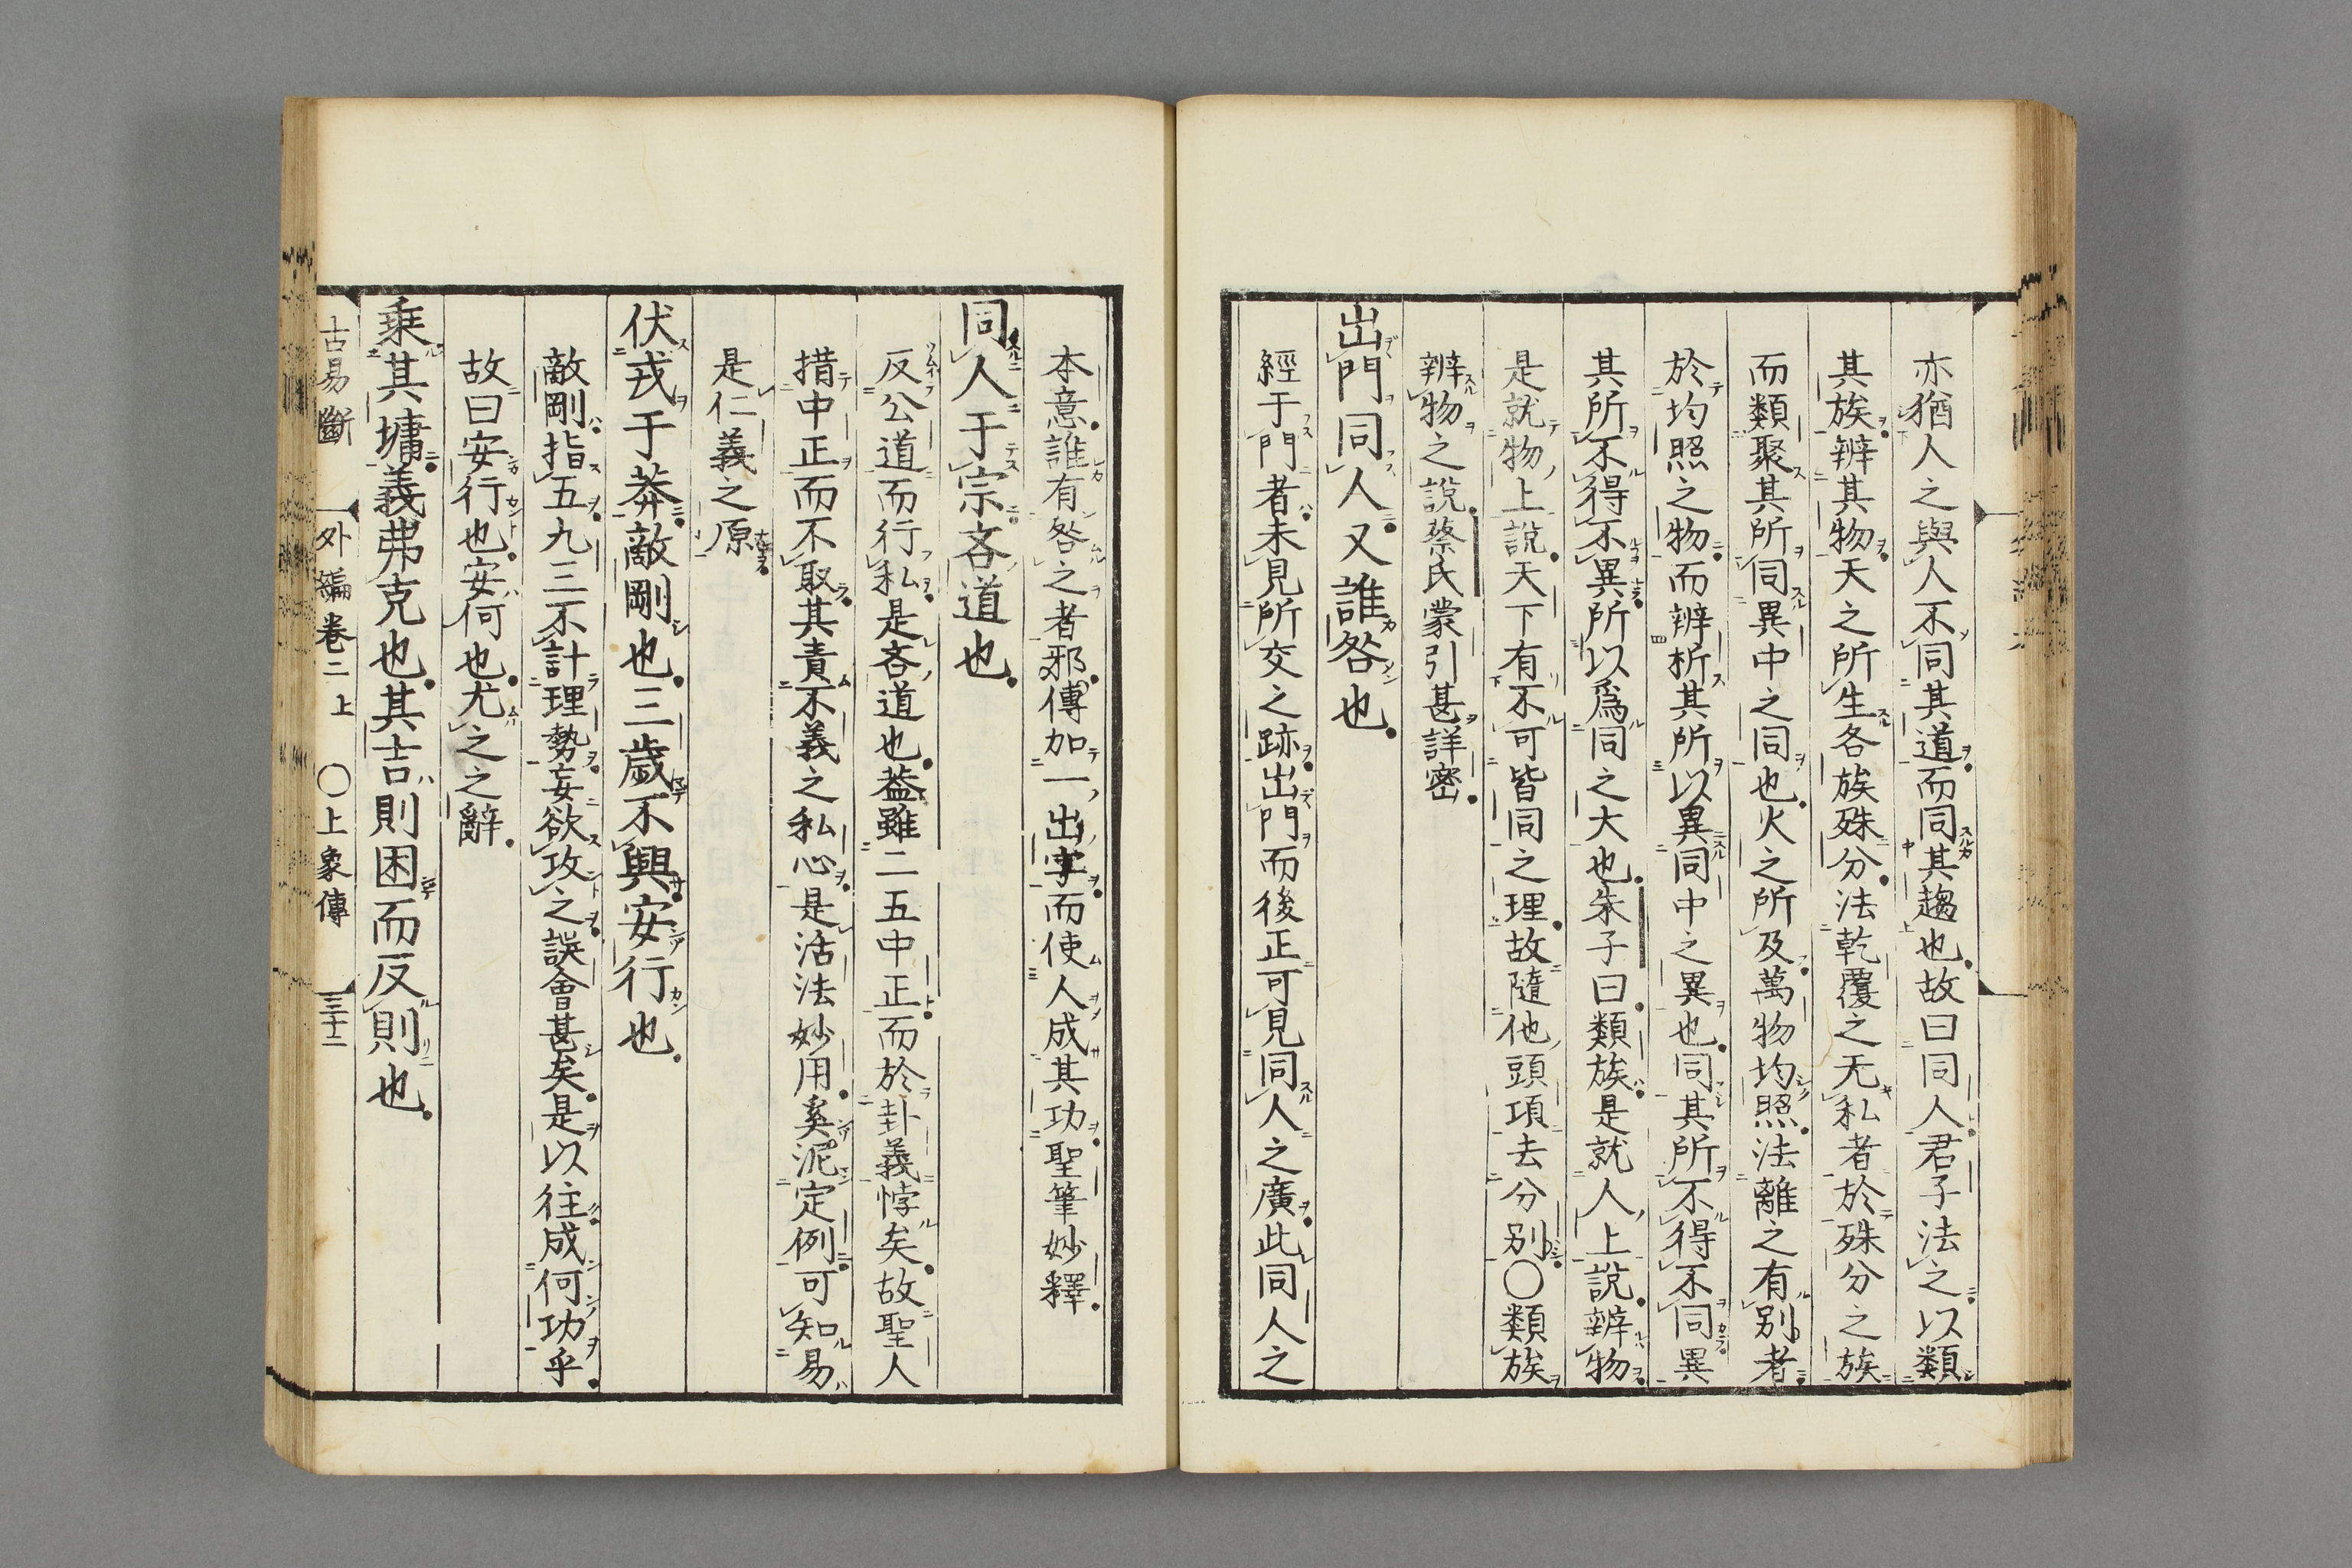 亦猶人之與人不同其道而同其趨也故曰同人君子法之以類
其族辨其物天之所生各族殊分法乾覆之无私者於殊分之族
而類聚其所同異中之同也火之所及萬物均照法離之有別者
於均照之物而辨析其所以異同中之異也同其所不得不同異
其所不得不異所以爲同之大也朱子曰類族是就人上說辨物
是就物上說天下有不可皆同之理故隨他頭項去分别〇類族
辨物之說蔡氏蒙引甚詳密
出門同人又誰咎也
經于門者未見所交之跡出門而後正可見同人之廣此同人之
本意誰有咎之者邪傳加一出字而使人成其功聖筆妙釋
同人于宗吝道也
反公道而行私是吝道也蓋雖二五中正而於卦義悖矣故聖人
措中正而不取其責不義之私心是活法妙用奚泥定例可知易
是仁義之原
伏戎于莽敵剛也三歲不興安行也
敵剛指五九三不計理勢妄欲攻之誤會甚矣是以往成何功乎
故曰安行也安何也尤之之辭
乘其墉義弗克也其吉則困而反則也
古易斷 外編卷二上 〇上象傳 三十二